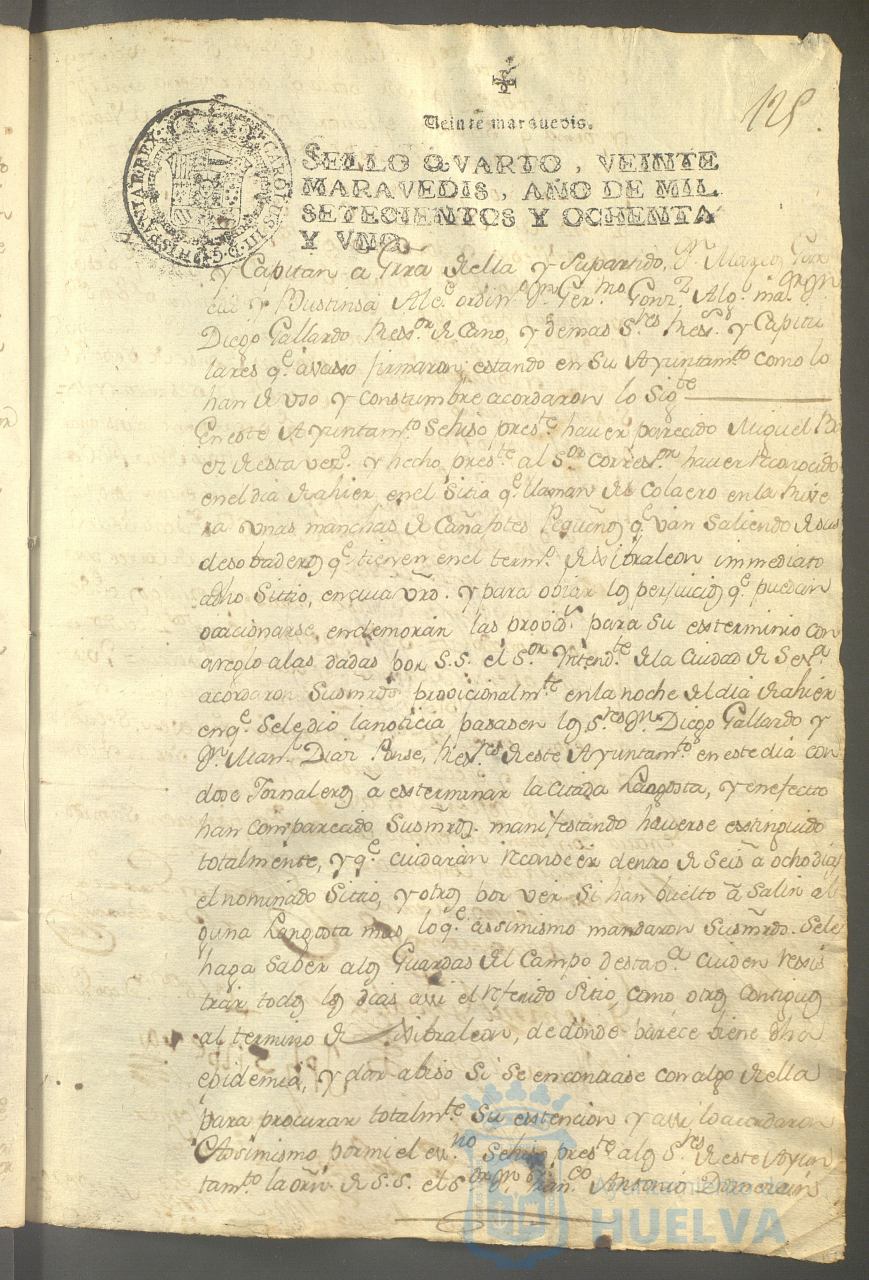 125
Veinte maravedis.
CAROLUS III D G HISPANIAR REX
SELLO QVARTO, VEINTE
MARAVEDIS, AÑO DE MIL
SETECIENTOS Y OCHENTA
Y VNO.
y Capitan a Grra de ella y su partido, Dn.
y Bustinsa Alce. ordins. Dn. Germo. Gonzz. Alg. ma. Dn.
Diego Gallardo Ressor. de Cano, y demas Sres Ress. y Capitu
lares qe. avasso firmaron, estando en su Ayuntamto como lo
han de uso y constumbre acordaron lo Sigte
En este Ayuntamto. Sehiso preste haver parecido Miguel
de esta vecd. y hecho preste al Sor Corresor. haver reconocido
en el dia de ahier en el Sitio qe. llaman del Colaero en la Rive
ra unas manchas de Cañafotes Pequeños qe van saliendo de sus
desobaderos qe tienen en el termo. de Gibraleon immediato
adho Sittio, en cuia vrd. y para obiar los perjuicios qe. puedan
ocacionarse, en demorar las provids. para su essterminio con
areglo a las dadas por S.S. el Sor. Yntendte de la Ciudad de Seva.
acordaron Susmrds provicionalmte en la noche del dia de ahier
en qe. Seledio la noticia pasasen los Sres Dn. Diego Gallardo y
Dn. Manl. Diaz Ponse, Resres de este Ayuntamto en este dia con
dose Jornaleros á essterminar la citada Langosta, y en efecto
han comparecido Susmrds. manifestando haverse esstinguido
totalmente, y qe. cuidarán reconoser dentro de Seis á ocho dias
el nominado Sitio, y otros por ver si han buelto á Salir al
guna Langosta mas lo qe. assimismo mandaron Susmrds. Sele
haga saber a los Guardas del Campo desta va. cuiden ressis
trar todos los dias assi el referido Sitio, como otros contiguos
al termino de Gibraleon, de donde parece biene dha
epidemia, y dar abiso si se encontrase con algo de ella
para procurar totalmte su esstencion y assi lo acordaron
Assimismo por mi el esno. Sehiso preste a los Sres de este Ayun
tamto la orn. de S.S. el Sor Dn. Franco. Antonio Domezain
Ayuntamiento de
HUELVA